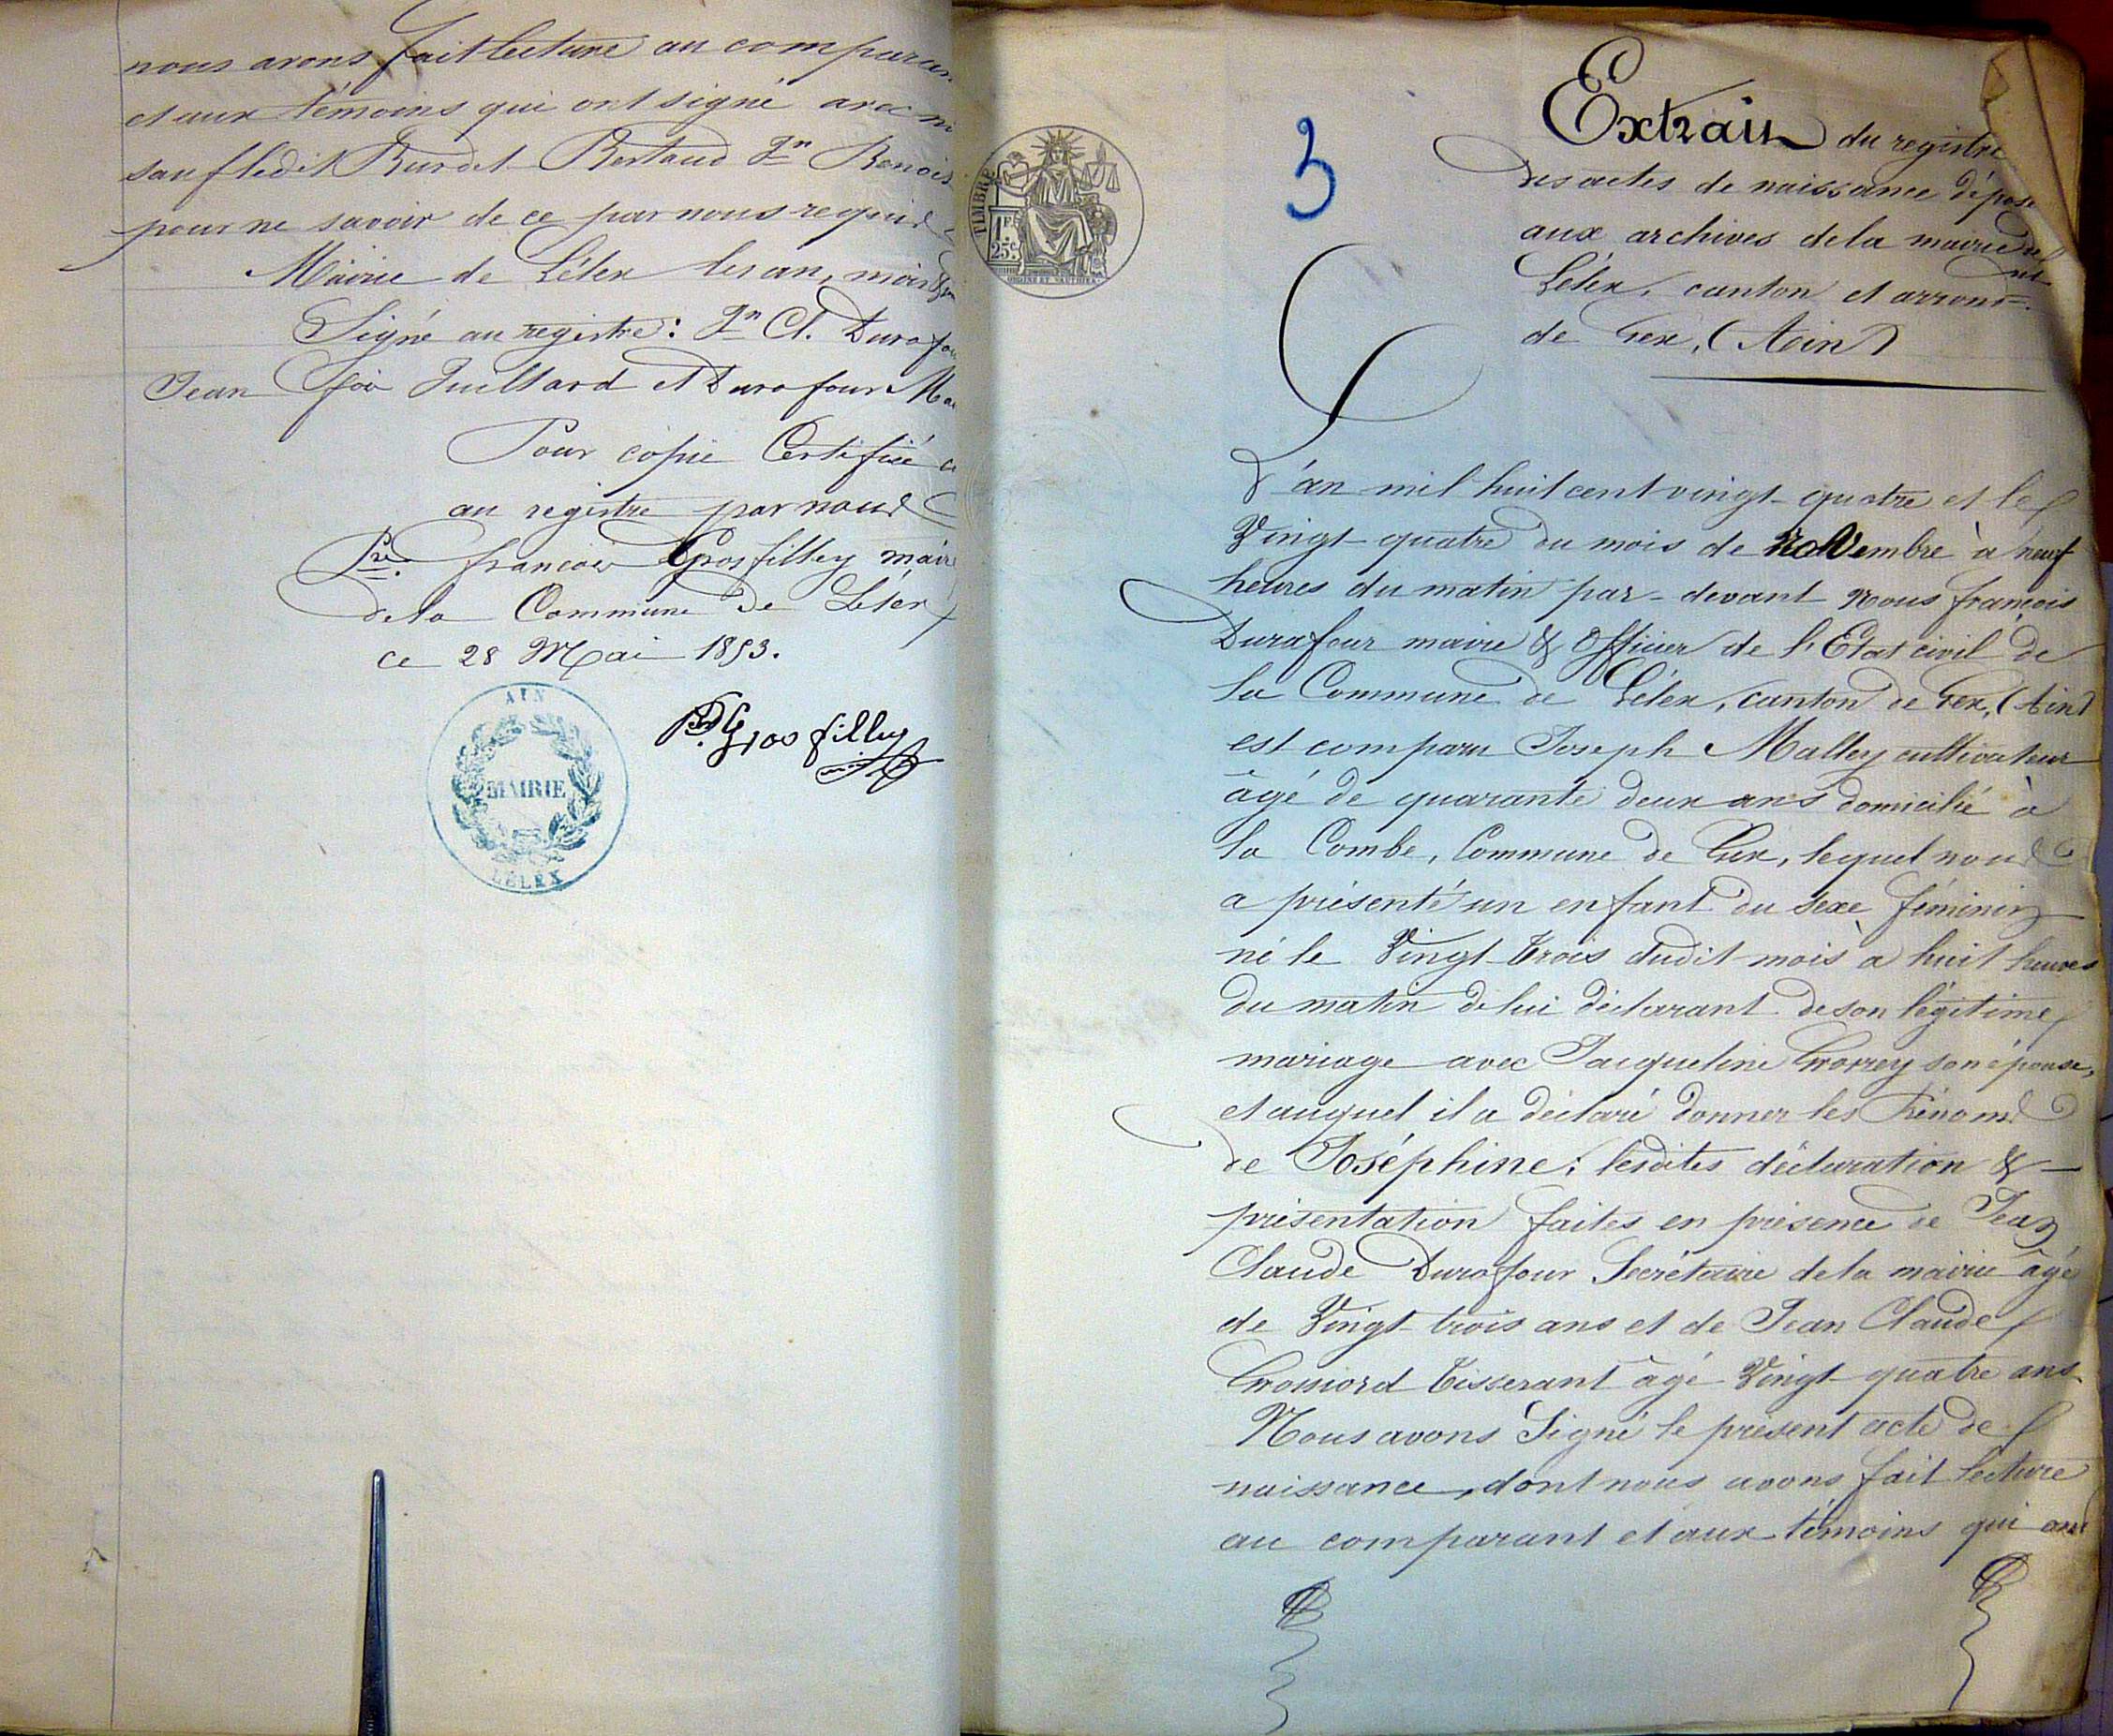 nous avons fait lecture au comparan
et aux témoins qui ont signé avec
sauf ledit Burdet Bertaud Jn Benoi
pour ne savoir de ce par nous requis
Mairie de Lélex les an, mois &
Signé au registre: Jn Cl. Durafou
Jean foi Juilland et Durafour Ma
Pour copie Certifiée
au registre par nous
Pre. françois Grosfilley mair
de la Commune de Lélex
ce 28 Mai 1853.
AIN
MAIRIE
LÉLEX
Grosfilley
TIMBRE
1F.
25c.
3
Extrait du registre
des actes de naissance déposé
aux archives de la mairie de
Lélex, canton et arront.
de Gex, (Ain)
L'an mil huit cent vingt-quatre et le
Vingt-quatre du mois de novembre à neuf
heures du matin par-devant Nous françois
Durafour maire & Officier de l'Etat civil de
la Commune de Lélex, canton de Gex, (Ain)
est comparu Joseph Malley cultivateur
âgé de quarante deux ans domicilié à
la Combe, Commune de Gex, lequel nous
a présenté un enfant du sexe féminin
né le Vingt-trois dudit mois à huit heures
du matin de lui déclarant de son légitime
mariage avec Jacqueline Grossey son épouse,
et auquel il a déclaré donner les Prénoms
de Joséphine; lesdites déclaration &
présentation faites en présence de Jean
Claude Durafour Secrétaire de la mairie âgé
de Vingt-trois ans et de Jean Claude
Grossiord tisserant âgé Vingt-quatre ans.
Nous avons Signé le présent acte de
naissance, dont nous avons fait lecture
au comparant et aux témoins qui ont